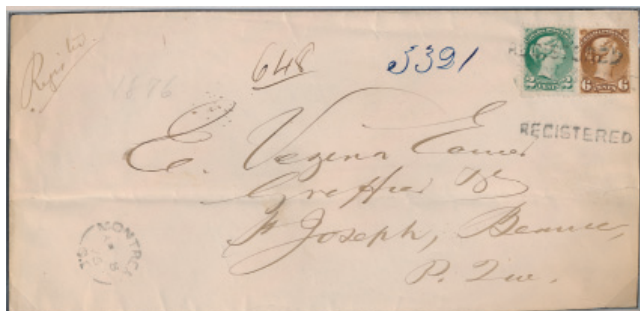 Registered
1876
648
3391
2 CENTS 2
6 CENTS 6
REGISTERED
REGISTERED
E. Vezina
St Joseph, Beauce,
P. Que.
MONTREAL